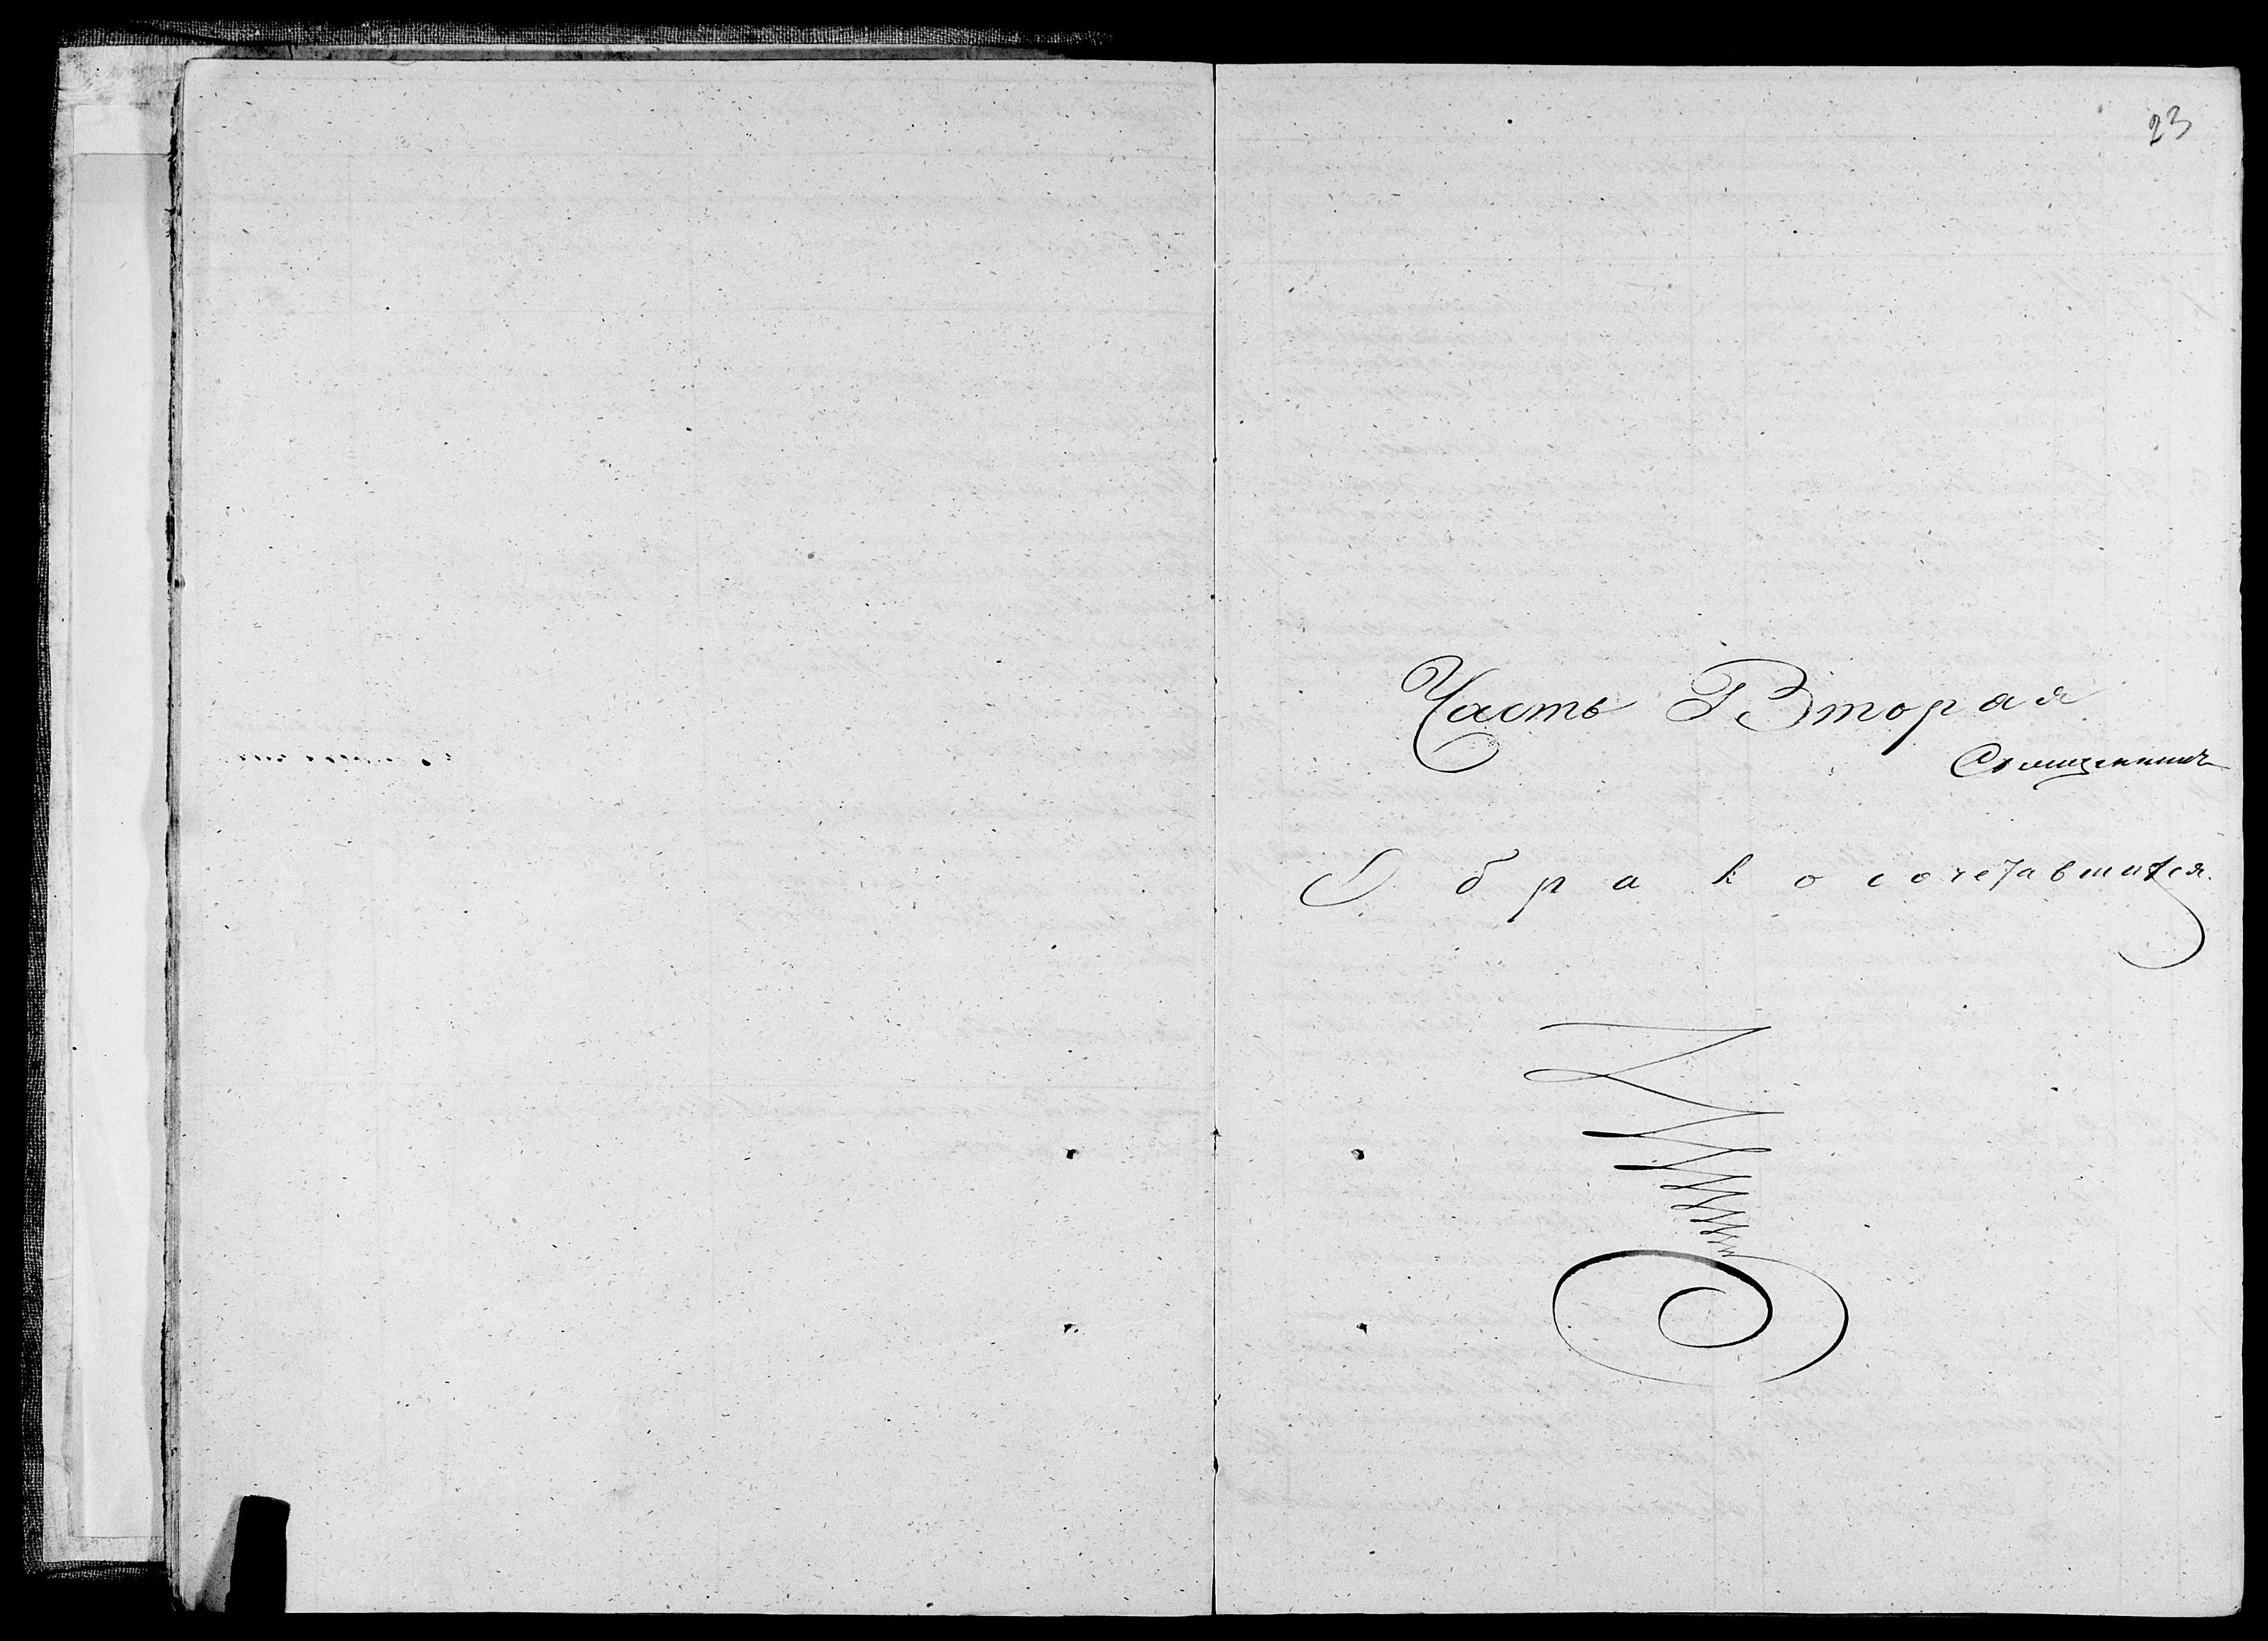 23
Часть Вторая
Священникъ
О бракосочетавшихся.